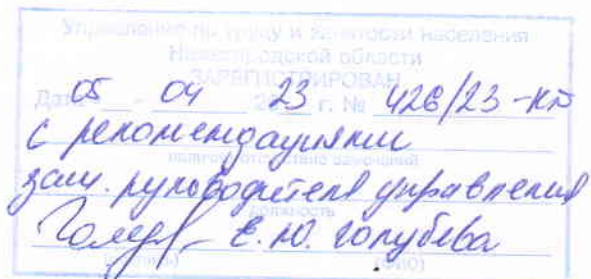 Управление по труду и занятости населения
Нижегородской области
ЗАРЕГИСТРИРОВАН
Дата 05 - 04 2023 г. № 426/23-КД
с рекомендациями
зам. руководителя управления
должность
Е.Ю. Голубева
(подпись) (ФИО)